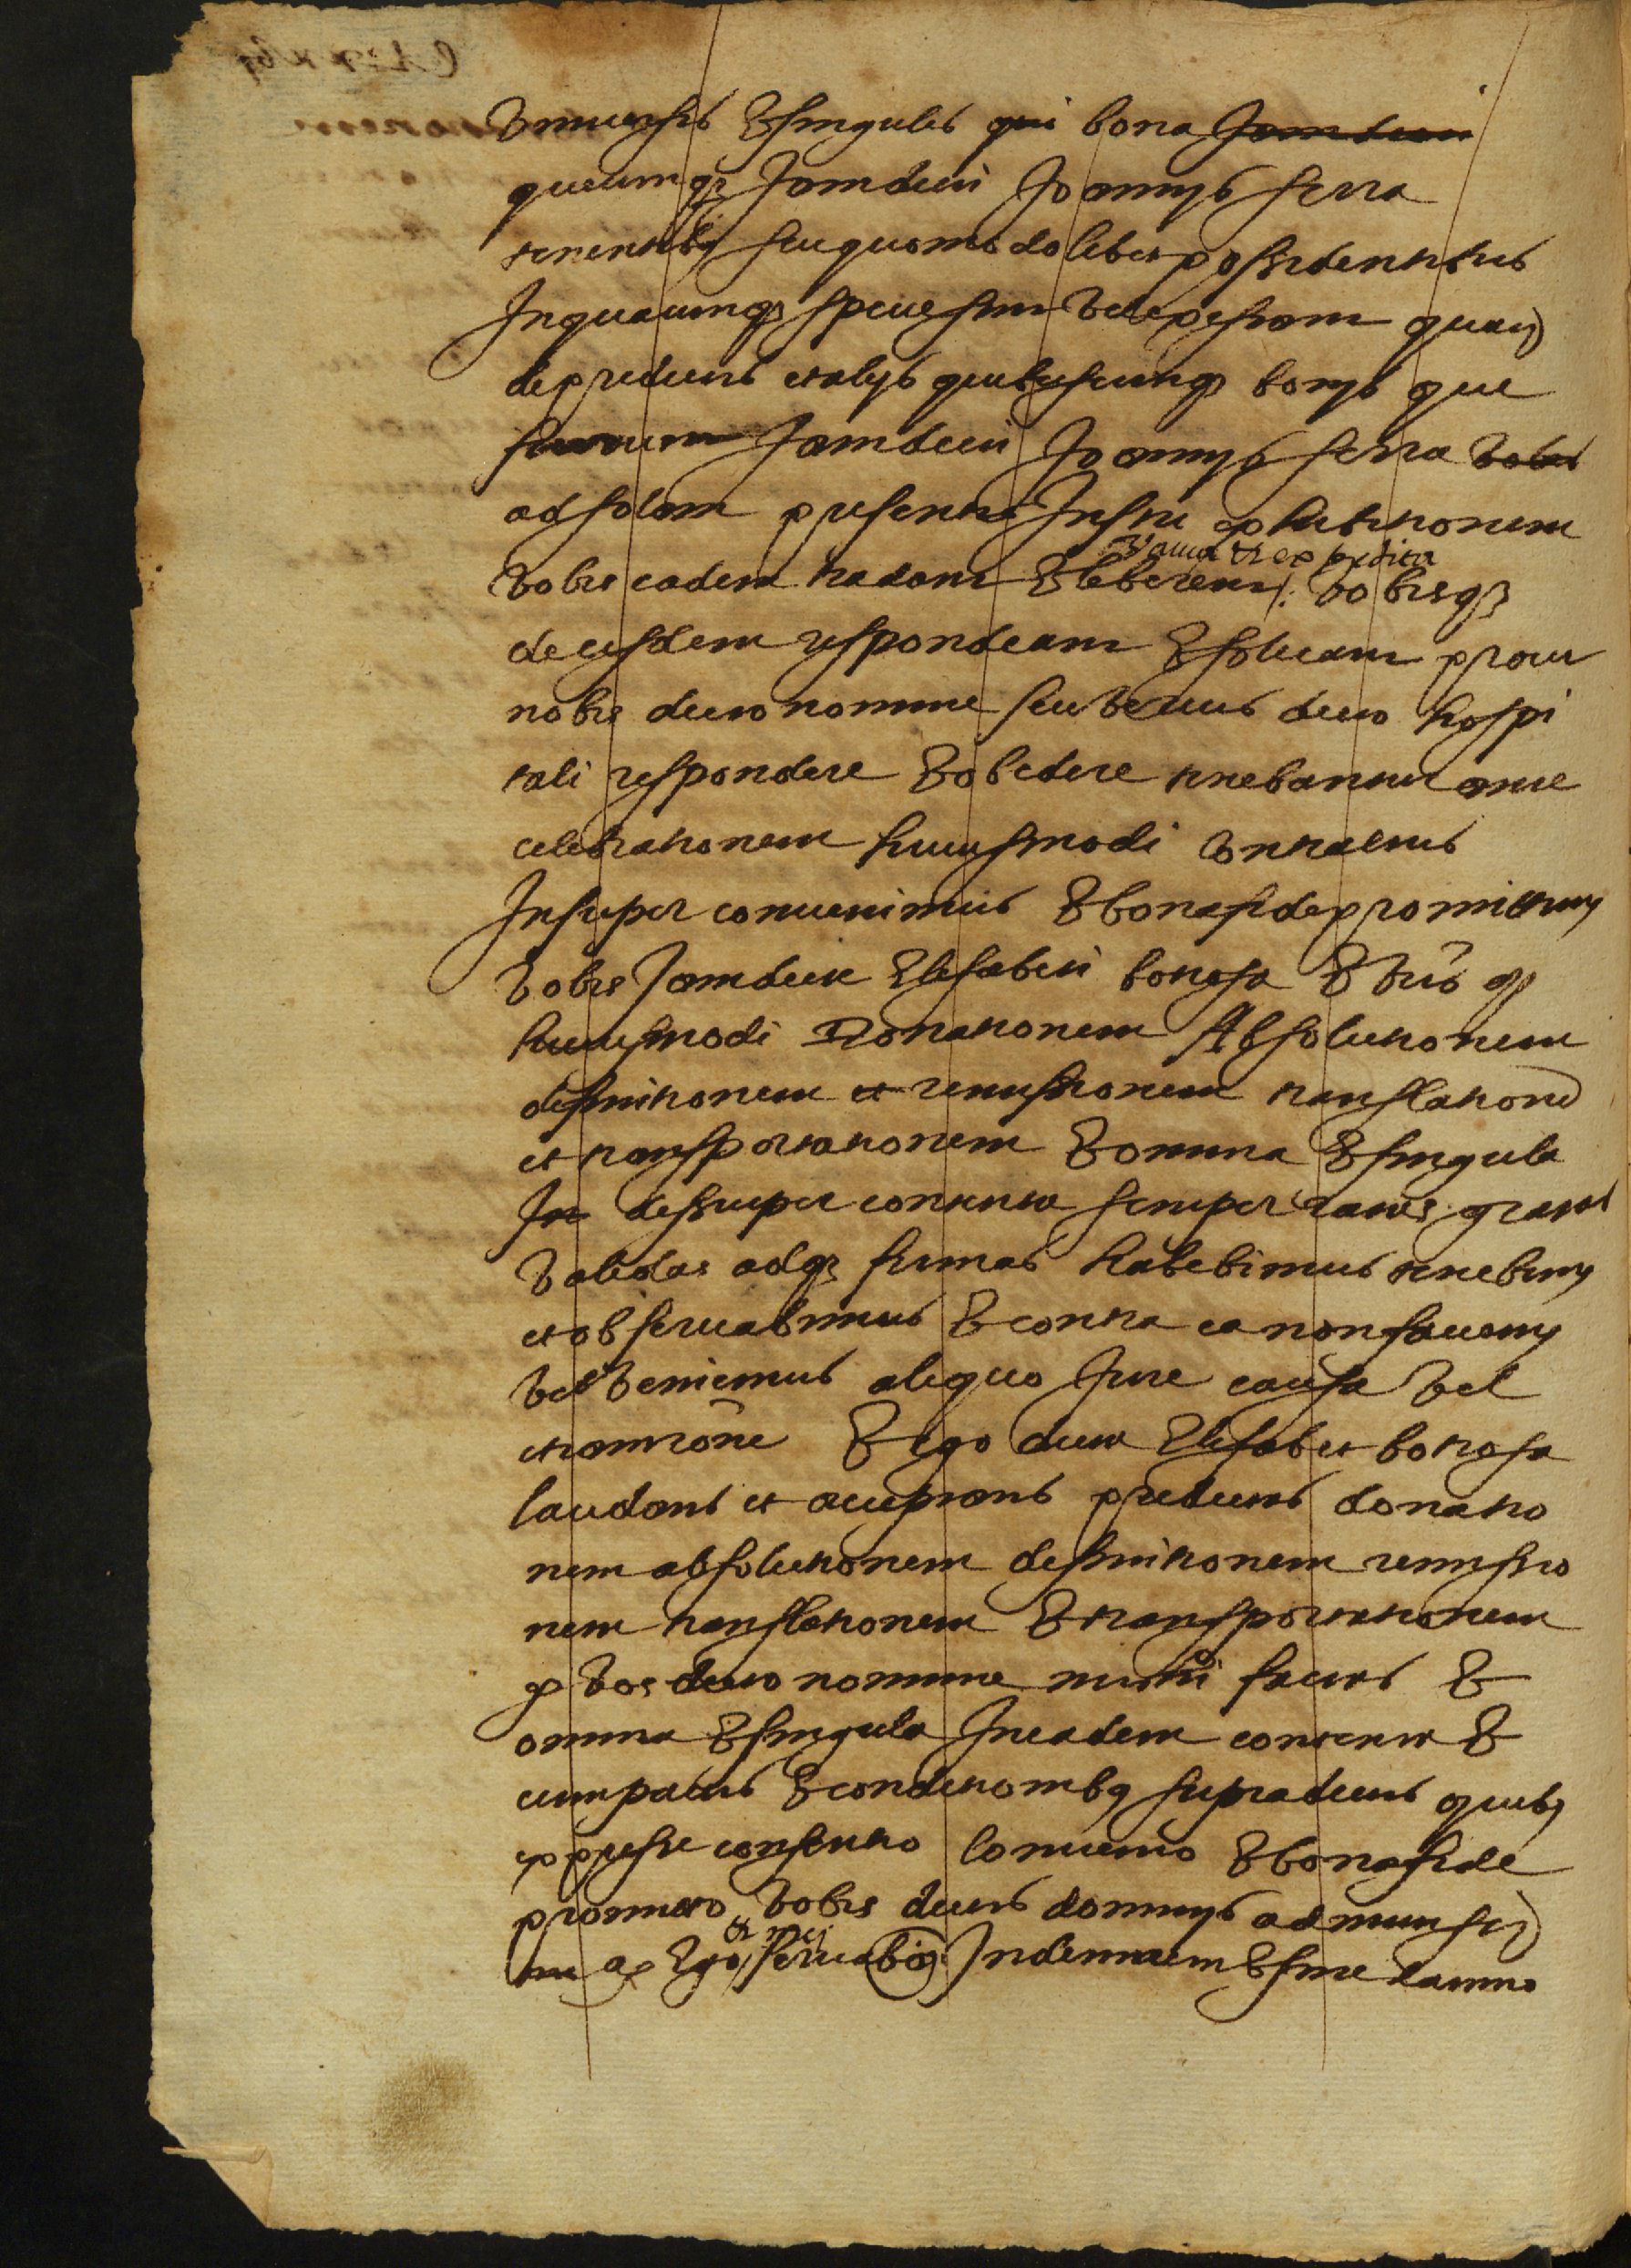 Vniuersis & singulis qui bona Jamdicti
quecumqȝ Jamdicti Joannis serra
tenentibȝ seu quomodolibet possidentibus
In quacumqȝ specie sint vel ex p[...]
de predictis et alijs quibuscumqȝ bonis que
fuerunt Jamdicti Joannis serra vobis
ad solam presentis Instri exhibitionem
vacua et expedita
vobis eadem tradant & liberent /: vobisqȝ
de eisdem respondeant & soluant prout
nobis dicto nomine seu verius dicto hospi
tali respondere & obedere tenebantur ante
celebrationem huiusmodi contractus
Insuper conuenimus & bona fide promittimus
vobis Jamdicte Elisabeti botegsa & vris qȝ
huiusmodi Donationem Absolutionem
deffinitionem et remissionem translatione
et transportationem & omnia & singula
In desuper contenta semper ratas gratas
validas adqȝ firmas habebimus tenebimus
et obseruabimus & contra ea non faciemus
vel veniemus aliquo Jure causa vel
etiam rone & ego dicta Elisabet botegsa
laudans et acceptans predictas donatio
nem absolutionem deffinitionem remissio
nem translationem & transportationem
p vos dicto nomine mihi factas &
omnia & singula In eadem contenta &
cum pactis & conditionibȝ supradictis quibȝ
expresse consentio Conuenio & bona fide
promitto vobis dictis dominis administr
et mei
qȝ Ego / seruabo Indemnem & sine damno